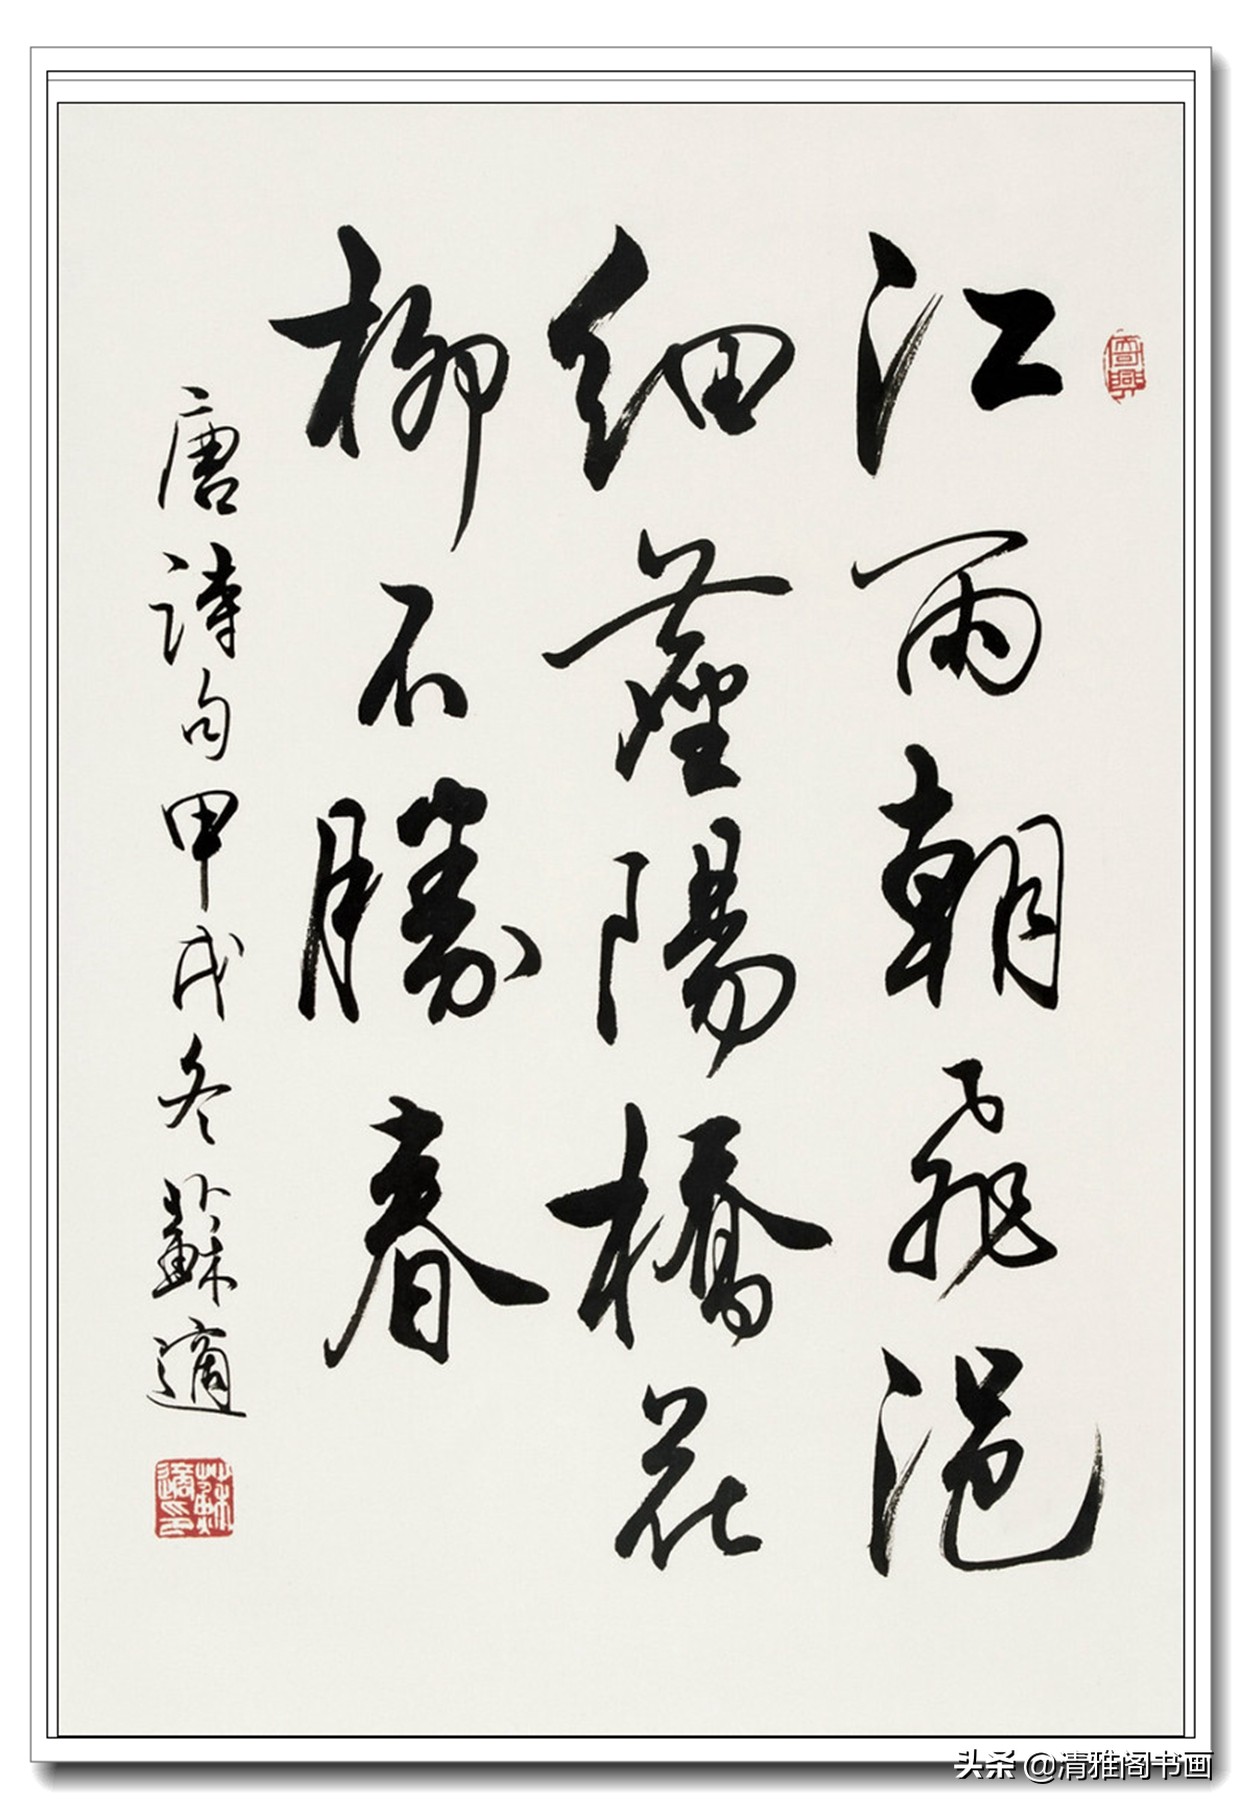 江雨朝飛浥
細塵陽橋花
柳不勝春
唐詩句甲戌冬蘇適
蘇適印
头条 @清雅阁书画